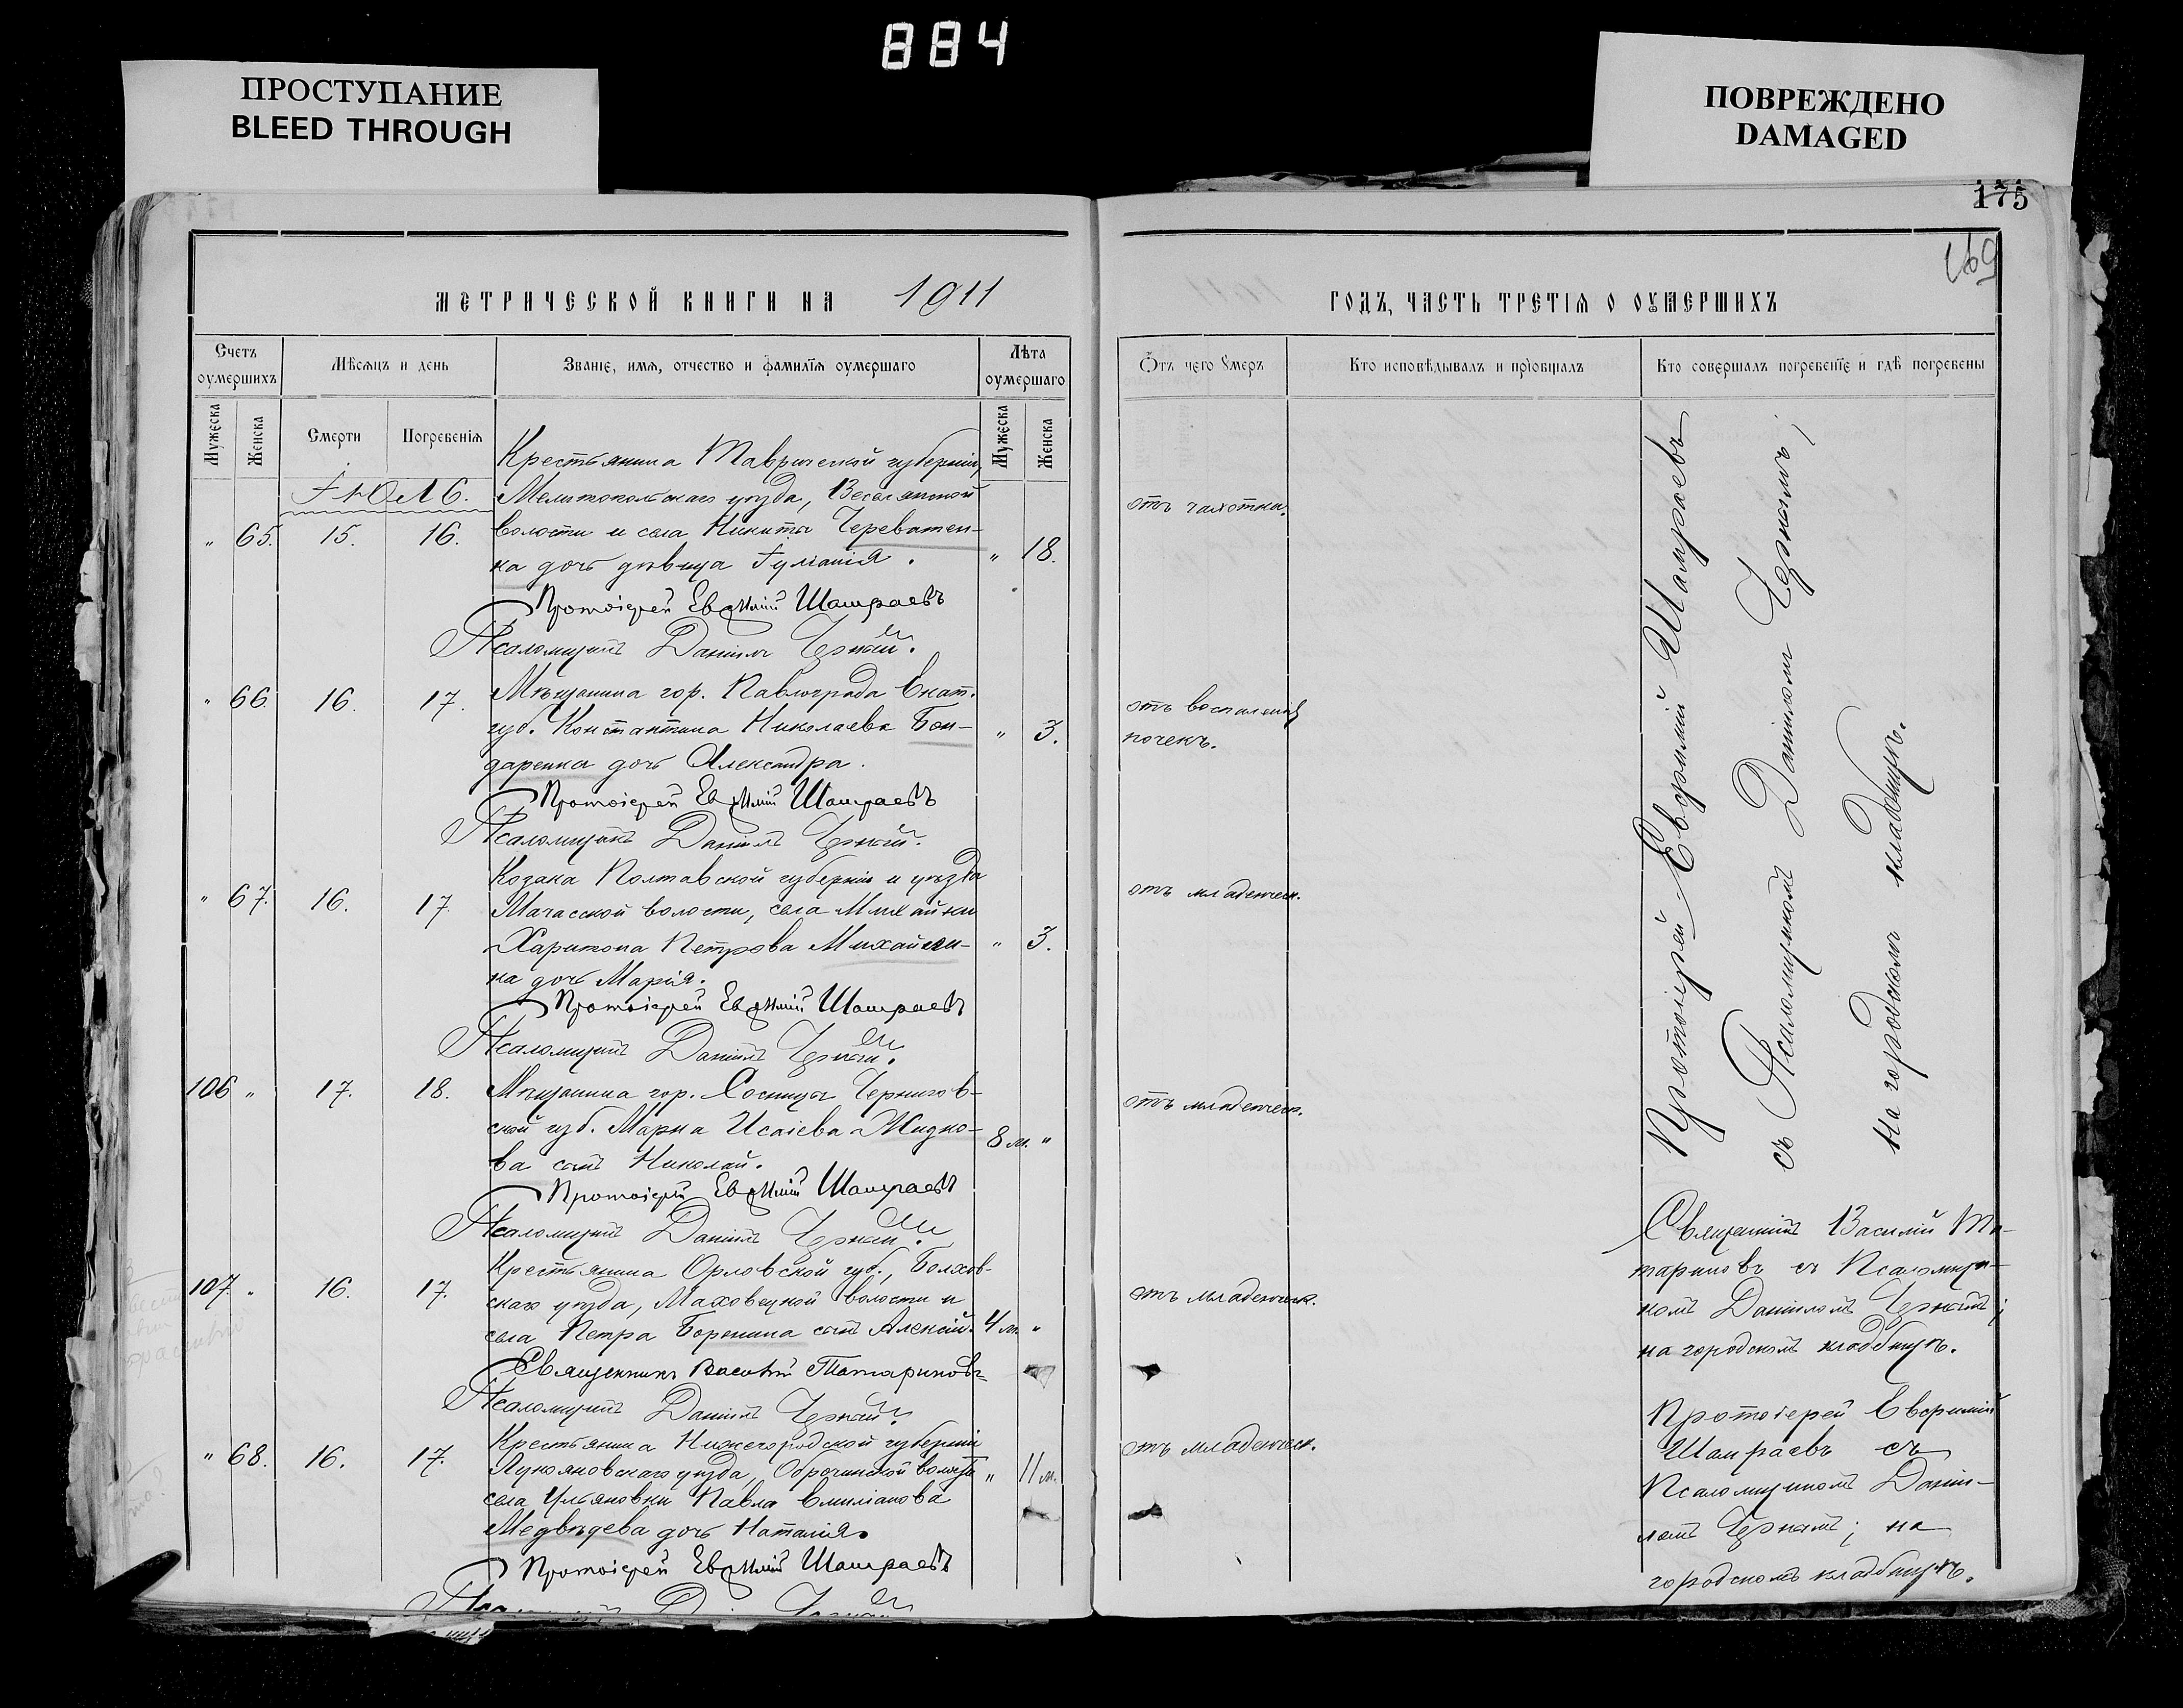 884
ПРОСТУПАНИЕ
BLEED THROUGH
ПОВРЕЖДЕНО
DAMAGED
175
169
МЕТРИЧЕСКОЙ КНИГИ НА 1911
Счетъ оумершихъ
Мѣсяцъ и день
Званіе, имя, отчество и фамилія оумершаго
Лѣта оумершаго
Мужеска
Женска
Смерти
Погребенія
Мужеска
Женска
Іюль.
Крестьянина Таврической губерніи,
Мелитопольскаго уѣзда, Веселянской
" 65. 15. 16. волости и села Никиты Череватен-
ка дочь дѣвица Іуліанія. " 18.
Протоіерей Евѳимій Шамраевъ
Псаломщикъ Даніилъ Черный.
" 66. 16. 17. Мѣщанина гор. Павлограда Екат.
губ. Константина Николаева Бон- " 3.
даренка дочь Александра.
Протоіерей Евѳимій Шамраевъ
Псаломщикъ Даніилъ Черный.
Козака Полтавской губерніи и уѣзда
" 67. 16. 17. Мачасской волости, села Михайлки
Харитона Петрова Михайли- " 3.
ка дочь Марія.
Протоіерей Евѳимій Шамраевъ
Псаломщикъ Даніилъ Черный.
106 " 17. 18. Мѣщанина гор. Сосницы Чернигов-
ской губ. Марка Исаіева Жидко- 8 м. "
ва сынъ Николай.
Протоіерей Евѳимій Шамраевъ
Псаломщикъ Даніилъ Черный.
Крестьянина Орловской губ., Болхов-
107. " 16. 17. скаго уѣзда, Маховецкой волости и
села Петра Боренина сынъ Алексій. 4 м. "
Священникъ Василій Татариновъ
Псаломщикъ Даніилъ Черный.
Крестьянина Нижегородской губерніи
" 68. 16. 17. Лукояновскаго уѣзда, Оброчинской волости " 11 м.
села Ульяновки Павла Емиліанова
Медвѣдева дочь Наталія.
Протоіерей Евѳимій Шамраевъ
ГОДЪ, ЧАСТЬ ТРЕТІЯ О ОУМЕРШИХЪ
Отъ чего умеръ
Кто исповѣдывалъ и пріобщалъ
Кто совершалъ погребеніе и гдѣ погребены
отъ чахотки.
отъ воспаленія
почекъ.
отъ младенческ.
отъ младенческ.
отъ младенческ.
отъ младенческ.
Протоіерей Евфимій Шамраевъ
съ Псаломщикомъ Даніиломъ Чернымъ;
на городскомъ кладбищѣ.
Священникъ Василій Та-
тариновъ съ Псаломщи-
комъ Даніиломъ Чернымъ;
на городскомъ кладбищѣ.
Протоіерей Евфимій
Шамраевъ съ
Псаломщикомъ Даніи-
ломъ Чернымъ; на
городскомъ кладбищѣ.